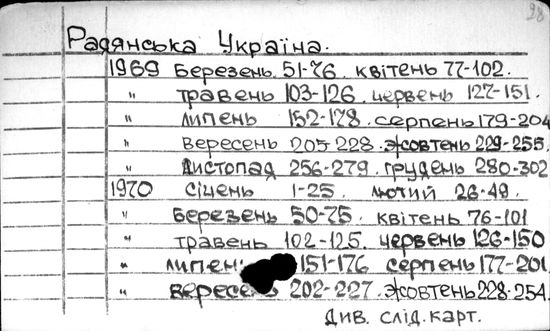 28
Радянська Україна.
1969 Березень 51-76. квітень 77-102.
" травень 103-126. червень 127-151.
" липень 152-178. серпень 179-204
" вересень 205-228. жовтень 229-255.
" листопад 256-279. грудень 280-302
1970 січень 1-25. лютий 26-49.
" березень 50-75. квітень 76-101
" травень 102-125. червень 126-150
" липен 151-176 серпень 177-201
" вересень 202-227. жовтень 228-254.
Див. слід. карт.